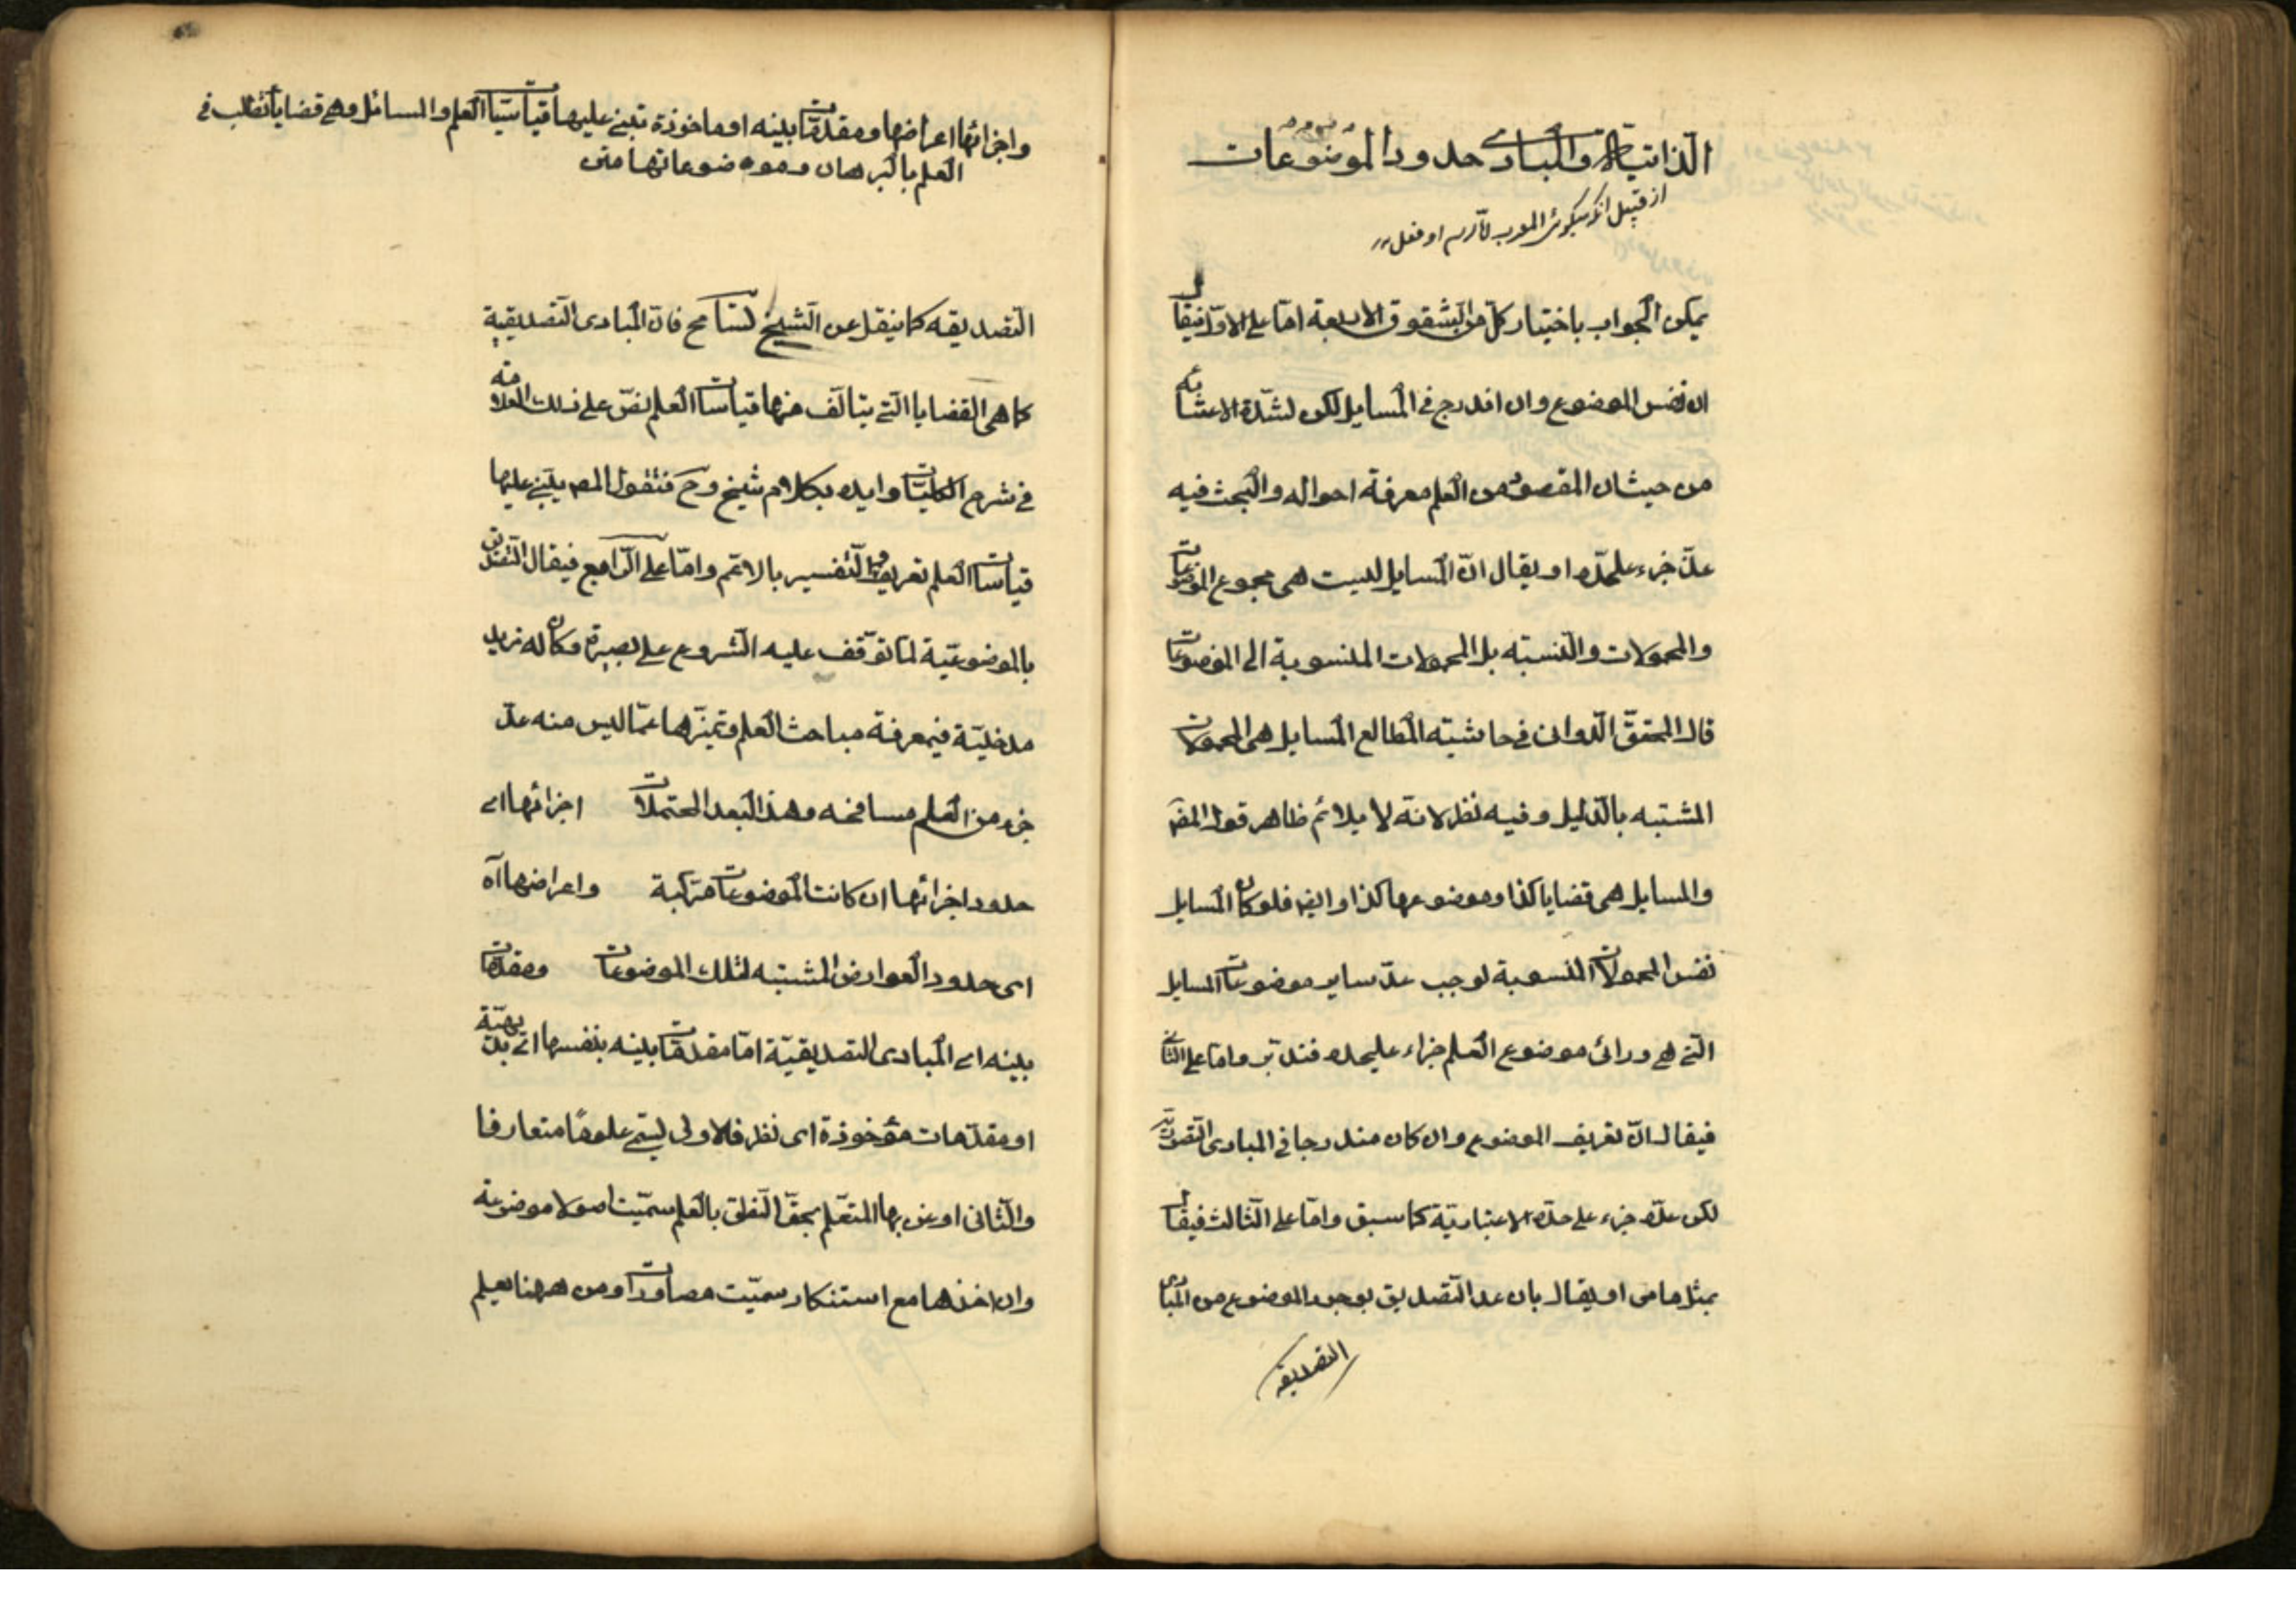 الذاتية والمبادى حدود الموضوعات
يمكن الجواب باختيار كل من الشقوق الاربعة اما على الاول فيقال
ان نفس الموضوع وان اندرج فى المسايل لكن لشدة الاعتناء به
من حيث ان المقصود من العلم معرفة احواله والبحث فيه
عدّ جزء عليحده او يقال انّ المسايل ليست هى مجموع الموضوعات
والمحمولات والنسبته بل المحمولات المنسوبة الى الموضوعات
قال المحقق الدوانى فى حاشيته المطالع المسايل هى المحمولات
المثبته بالدليل وفيه نظر لانه لا يلائم ظاهر قول المصـ
والمسايل هى قضايا كذا وموضوعها كذا وايضـ فلو كان المسايل
نفس المحمولات المنسوبة لوجب عدّ ساير موضوعات المسايل
التى هى ورائ موضوع العلم جزاء عليحده فتدبر واما على الثانى
فيقال انّ تعريف الموضوع وان كان مندرجا فى المبادى التصورية
لكن عدّه جزء على حدّه الاعتبارية كما سبق وامّا على الثالث فيقال
بمثل ما مر او يقال بان عد التصديق بوجود الموضوع من المبادى
التصديقيه
واجزائها اعراضها ومقدمات بينه او ماخوذة تبنى عليها قياسات العلم والمسائل وهى قضايا تطلب فى
العلم بالبرهان وموضوعاتها متن
التصديقيه كما ينقل عن الشيخ تسامح فان المبادى التصديقية
كما هى القضايا التى يتالف منها قياسات العلم نصّ على ذلك العلامة
فى شرح الكليات وايده بكلام شيخ وح فنقول المصـ يبتنى عليها
قياسات العلم تعريف او التفسير بالاعم وامّا على الرّابع فيقال التصديق
بالموضوعية لما توقف عليه الشروع على بصيرة وكان له مزيد
مدخلية فى معرفة مباحث العلم وتميزها عمّا ليس منه عدّ
جزء من العلم مسامحه وهذا ابعد المحتملات اجزائها اى
حدود اجزائها ان كانت الموضوعات مركبة واعراضها آه
اى حدود العوارض المثبته لتلك الموضوعات ومقدمات
بينه اى المبادى التصديقيّة امّا مقدمات بينه بنفسها اى بديهيّة
او مقدمات مؤخوذة اى نظر فالاولى ليسمى علومًا متعارفا
والثانى اوعن بها المتعلم بحق التعلق بالعلم سمّيت اصولا موضوعة
وان اخذها مع استنكار سمّيت مصادرات ومن ههنا يعلم